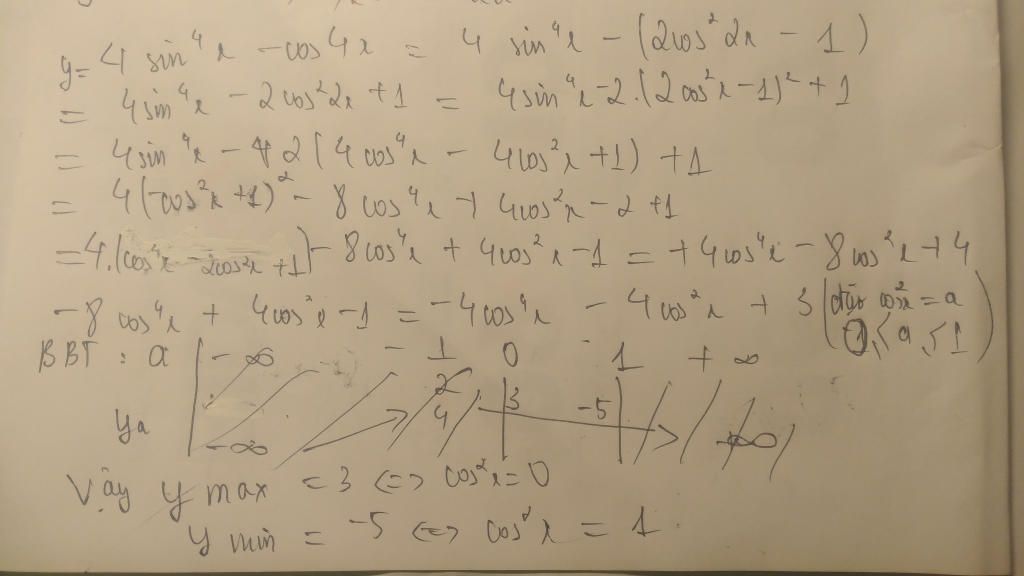 y= 4 sin⁴x - cos4x = 4 sin⁴x - (2cos²2x - 1)
= 4sin⁴x - 2cos²2x + 1 = 4sin⁴x - 2.(2cos²x-1)² + 1
= 4sin⁴x - 2(4cos⁴x - 4cos²x + 1) + 1
= 4(-cos²x + 1)² - 8cos⁴x + 4cos²x - 2 + 1
= 4.(cos⁴x - 2cos²x + 1) - 8cos⁴x + 4cos²x - 1 = + 4cos⁴x - 8cos²x + 4
- 8 cos⁴x + 4cos²x - 1 = -4cos⁴x - 4cos²x + 3 (đặt cos²x = a
0 ≤ a ≤ 1)
BBT : a -∞ - 1 0 1 + ∞
2
ya -∞ 4 3 -5 -∞
Vậy y max = 3 <=> cos²x = 0
y min = -5 <=> cos²x = 1.